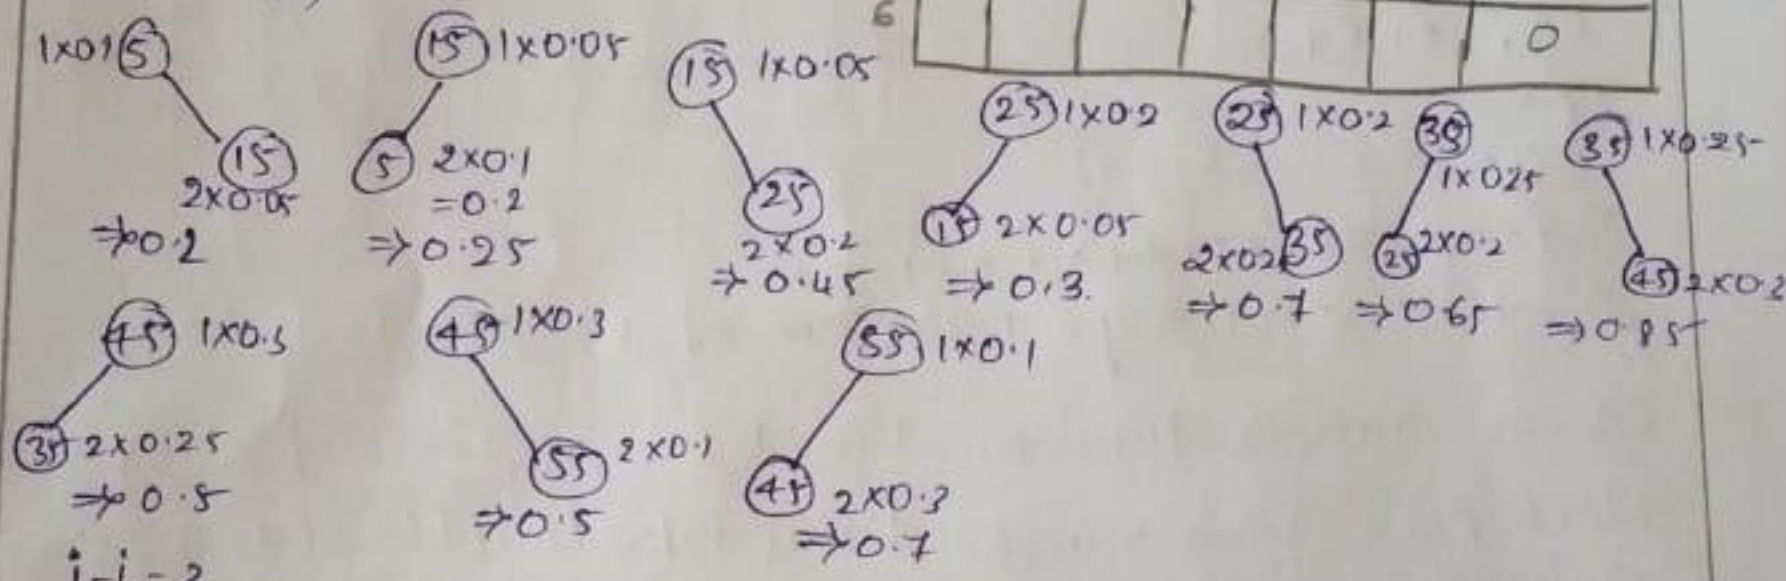 6
0
1x0.1 5
15
2x0.05
⇒0.2
15 1x0.05
5 2x0.1
=0.2
⇒0.25
15 1x0.05
25
2x0.2
⇒0.45
25 1x0.2
15 2x0.05
⇒0.3.
25 1x0.2
35
⇒0.7
35
1x025
25 2x0.2
⇒065
35 1x0.25
45
⇒0.85
45 1x0.3
35 2x0.25
⇒0.5
45 1x0.3
55 2x0.1
⇒0.5
55 1x0.1
45 2x0.3
⇒0.7